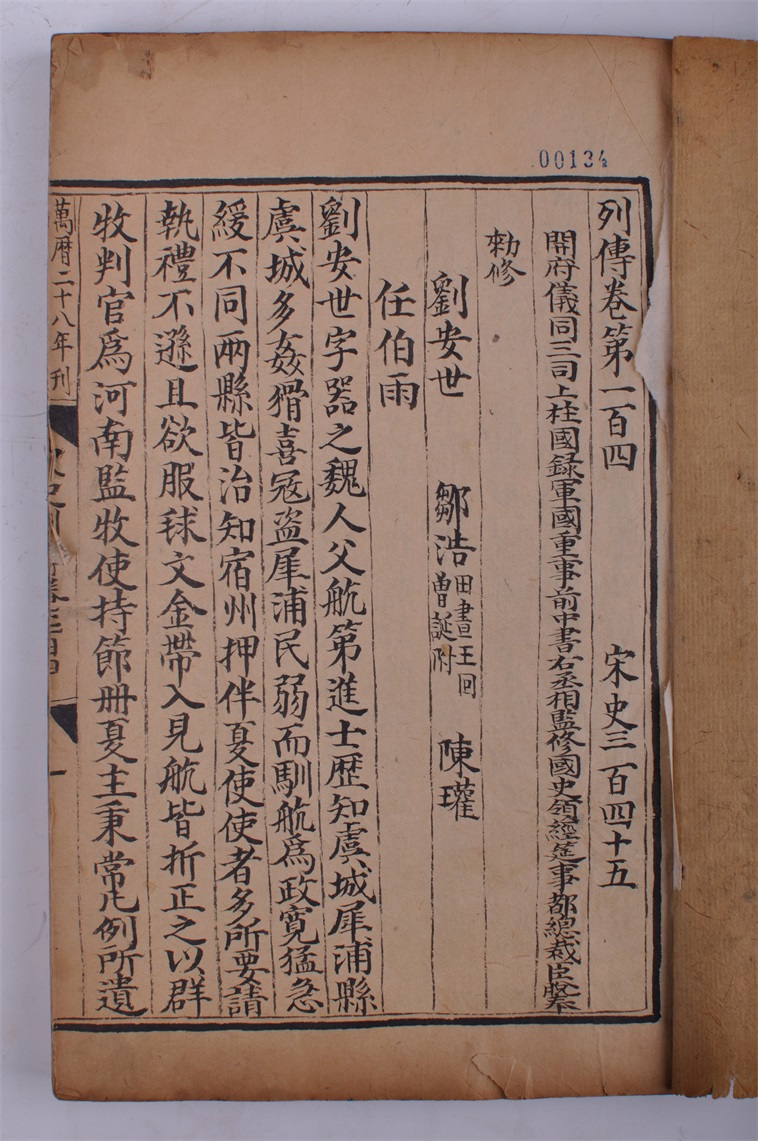 00134
列傳卷第一百四 宋史三百四十五
開府儀同三司上柱國録軍國重事前中書右丞相監修國史領經筵事都總裁臣脫脫奉
勑修
劉安世 鄒浩 田晝王回曾誕附 陳瓘
任伯雨
劉安世字器之魏人父航第進士歷知虞城犀浦縣
虞城多姦猾喜宼盜犀浦民弱而馴航爲政寛猛急
緩不同兩縣皆治知宿州押伴夏使使者多所要請
執禮不遜且欲服毬文金帶入見航皆折正之以群
牧判官爲河南監牧使持節册夏主秉常凢例所遺
萬曆二十八年刊